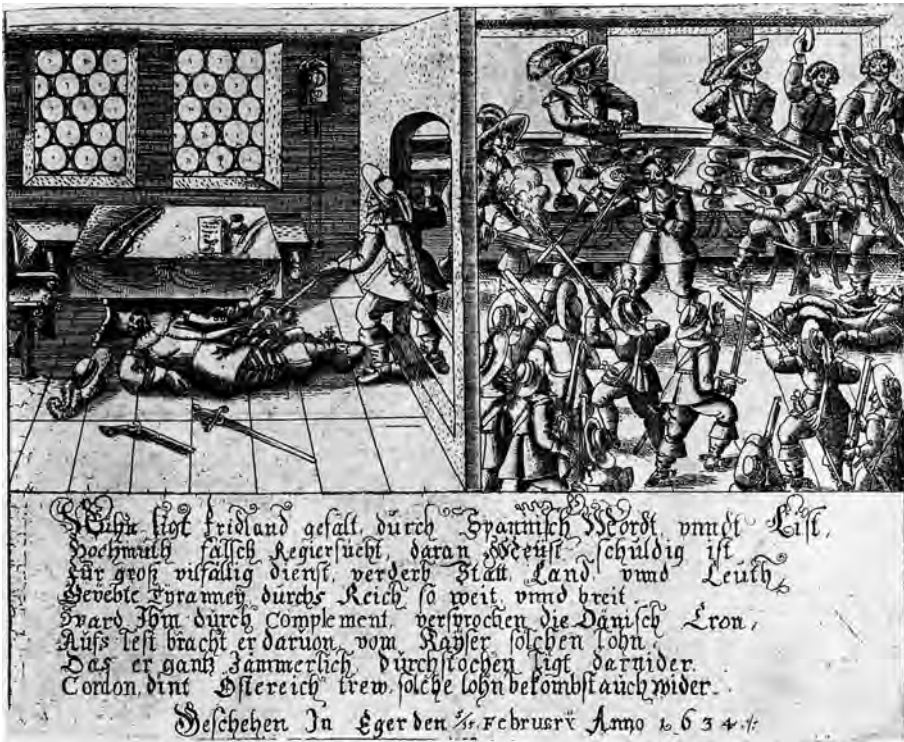 Wihn ligt Fridland gefält, durch Spannisch Mordt, vnndt List,
Hochmüth falsch Regiersücht, daran Meüst schüldig ist
Für groß vilfällig dienst, verderb Statt, Land, vnnd Leüth,
Geÿebte Tyranneÿ, dürchs Reich so weit, vnnd breit.
Ward Ihm dürch Complement, versprochen die Dänisch Cron,
Aüfs lest bracht er daruon, vom Kaÿser solchen lohn,
Das er gantz Jämmerlich, dürchstochen ligt darnider.
Cordon, dint Östereich trew, solche lohn bekombst auch wider.
Geschehen In Eger den 5/15 Februarÿ Anno 1634